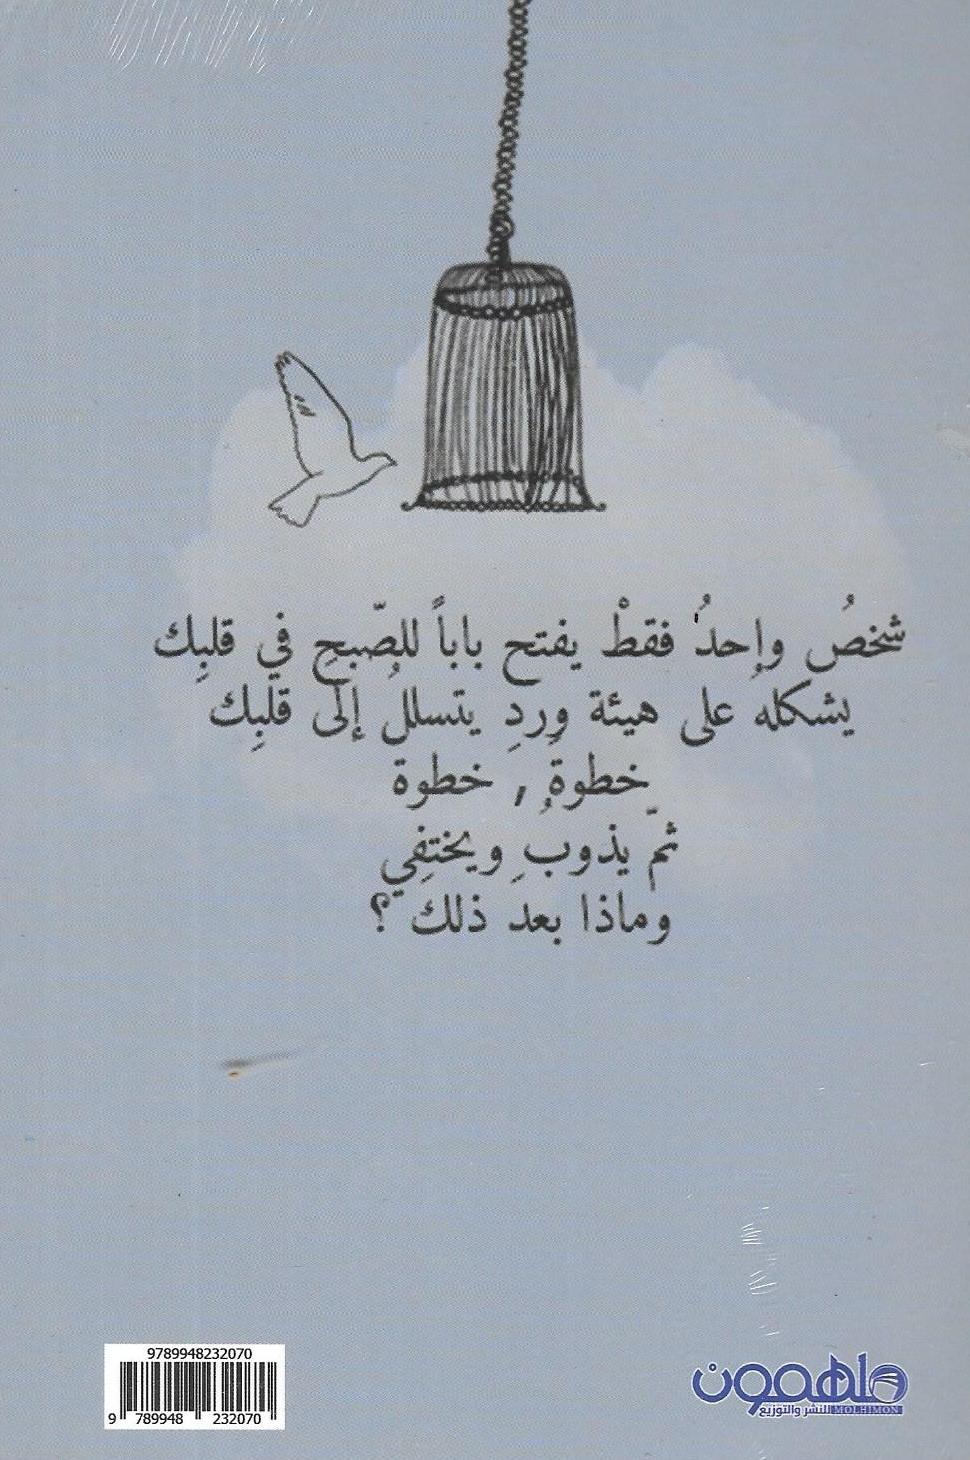 شخصُ واحدُ فقطْ يفتح باباً للصّبحِ في قلبِك
يشكلهُ على هيئة وردِ يتسللُ إلى قلبِك
خطوةً , خطوة
ثمّ يذوبُ ويختفِي
وماذا بعد ذلك ؟
9789948232070
9 789948 232070
ملهمون
للنشر والتوزيع MOLHIMON